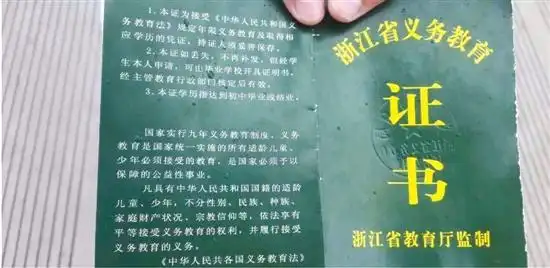 1. 本证为接受《中华人民共和国义
务教育法》规定年限义务教育及取得相
应学历的凭证，持证人须妥善保存。
2. 本证如丢失，不再补发，但经学
生本人申请，可由毕业学校开具证明书，
经主管教育行政部门核定后有效。
3. 本证学历指达到初中毕业或结业。
国家实行九年义务教育制度。义务
教育是国家统一实施的所有适龄儿童、
少年必须接受的教育，是国家必须予以
保障的公益性事业。
凡具有中华人民共和国国籍的适龄
儿童、少年，不分性别、民族、种族、
家庭财产状况、宗教信仰等，依法享有
平等接受义务教育的权利，并履行接受
义务教育的义务。
《中华人民共各国义务教育法》
浙江省义务教育
证
书
浙江省教育厅监制